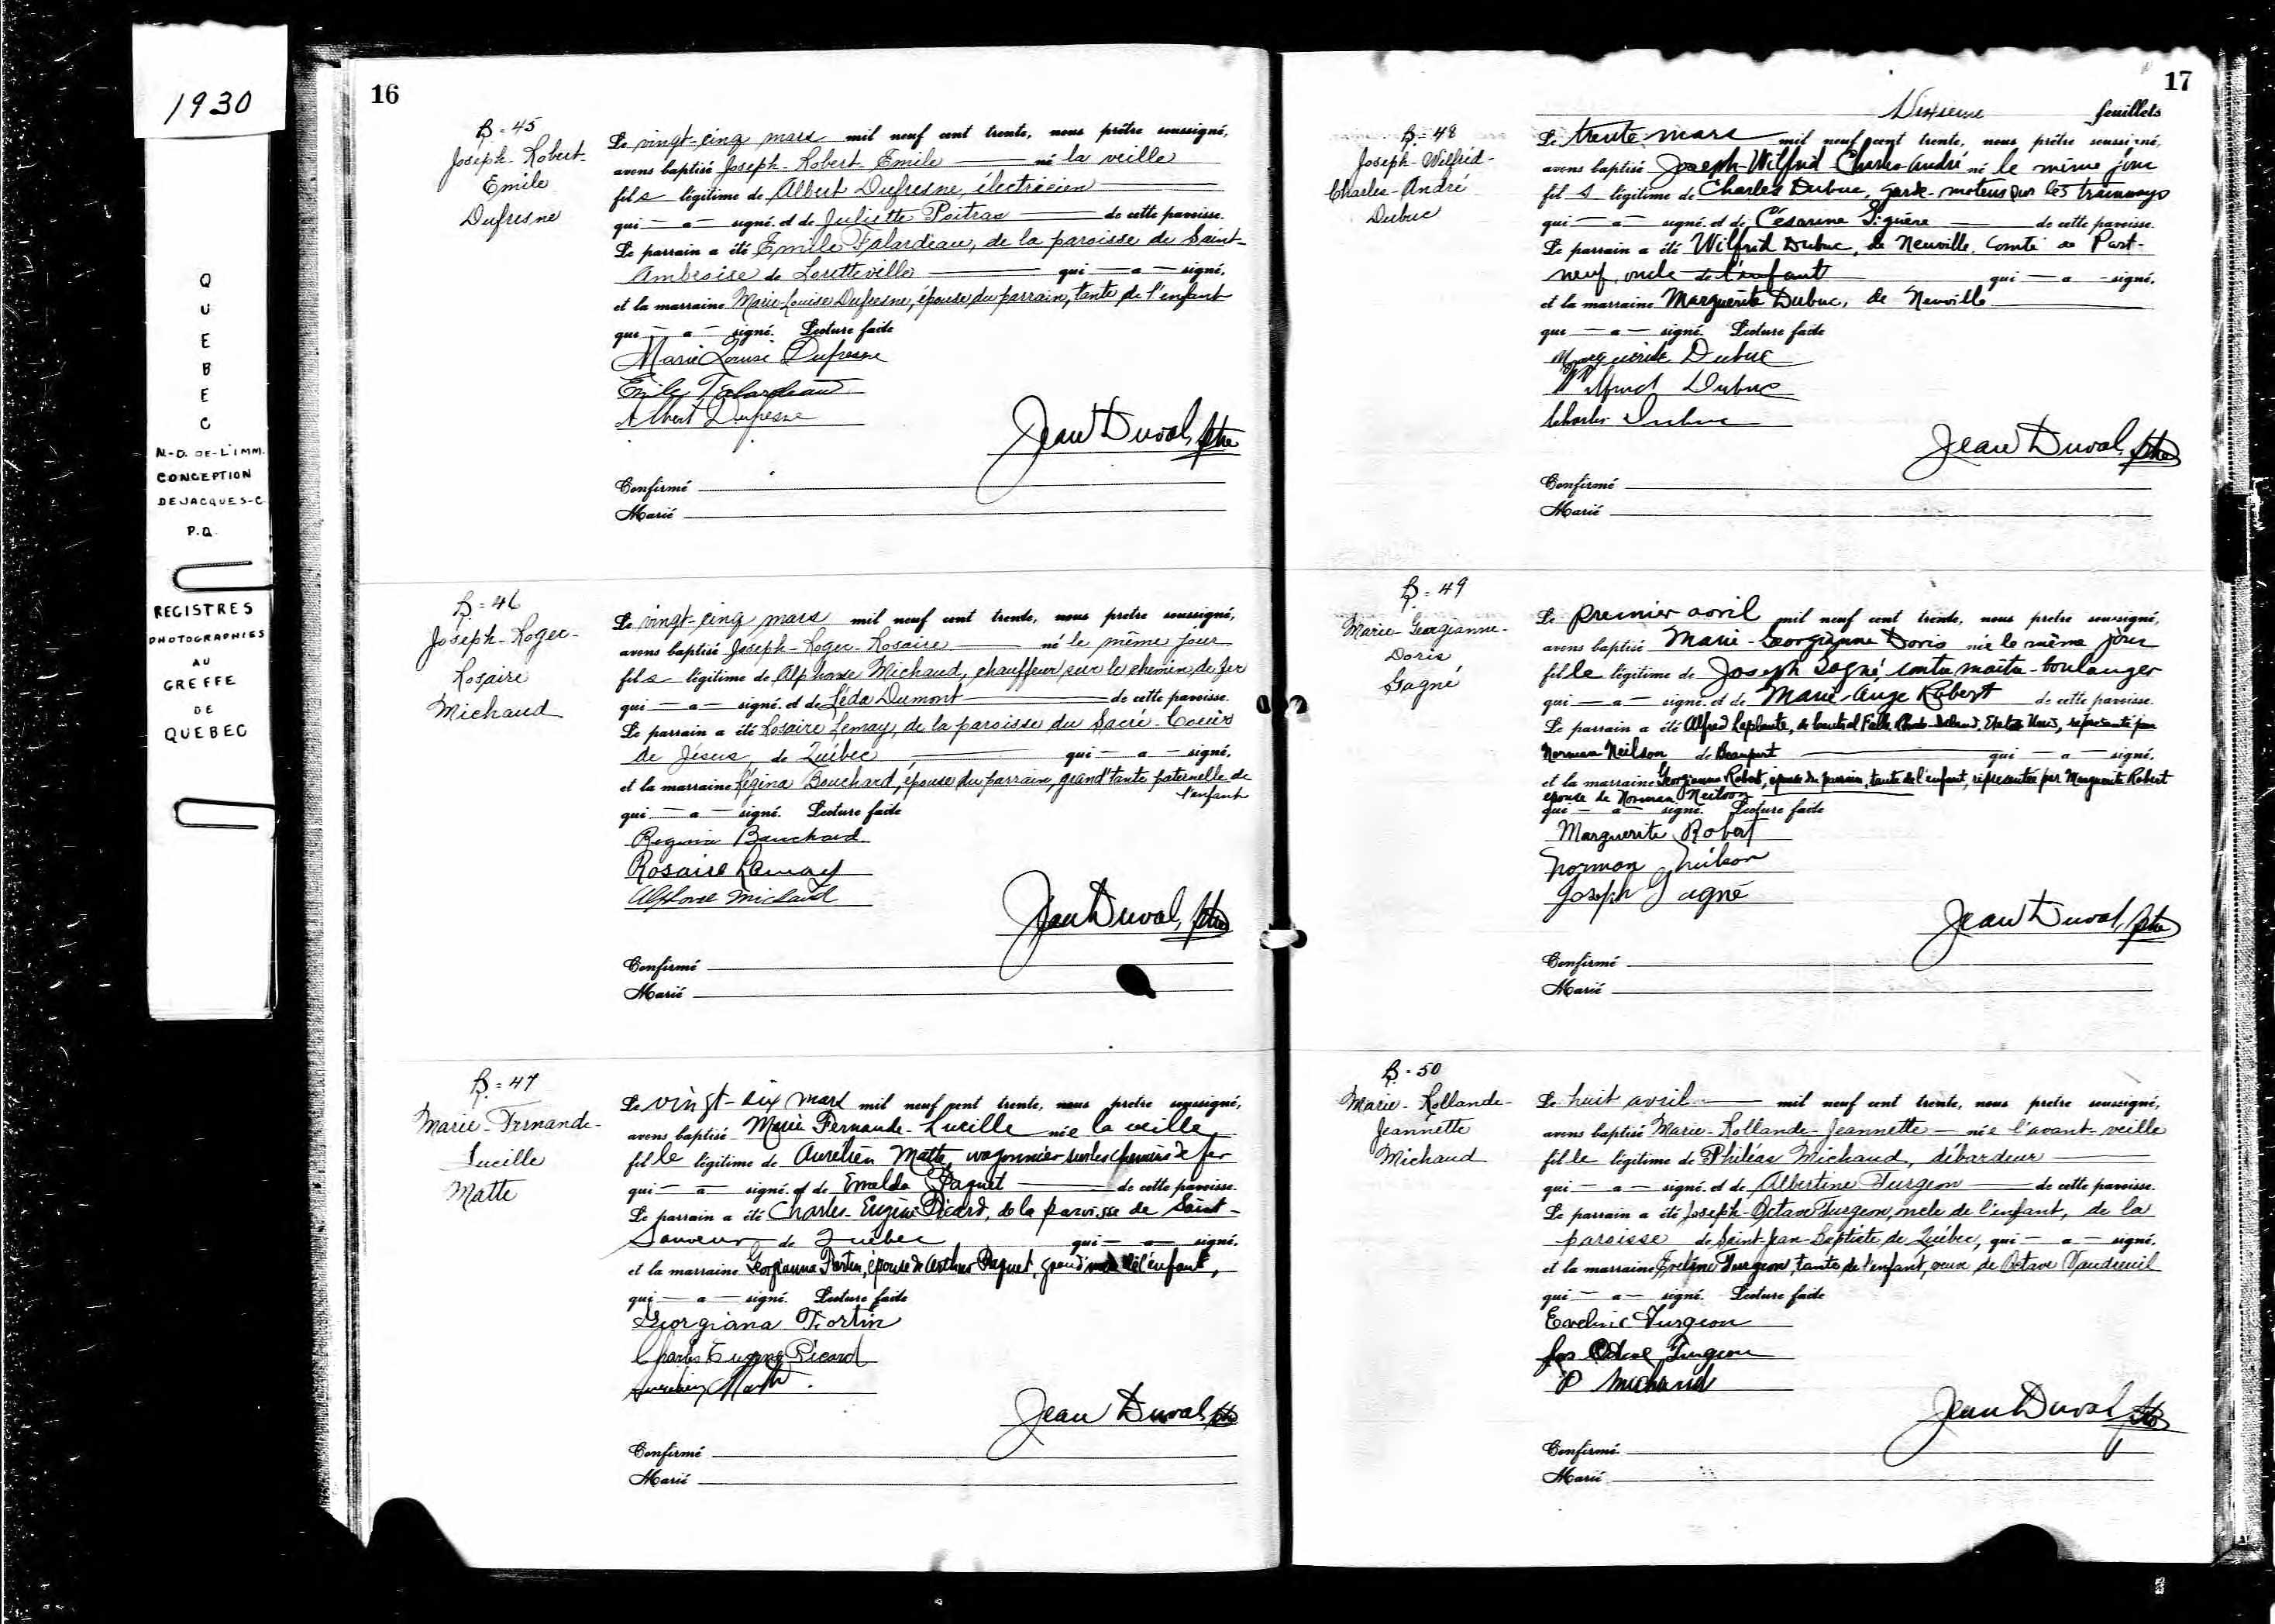 1930
QUEBEC
N-D. DE-L'IMM.
CONCEPTION
DE JACQUES-C
P.Q.
REGISTRES
PHOTOGRAPHIES
AU
GREFFE
DE
QUEBEC
16
B = 45
Joseph-Robert-
Emile
Dufresne
Le vingt-cinq mars mil neuf cent trente, nous prêtre soussigné,
avons baptisé Joseph-Robert-Emile né la veille
fils légitime de Albert Dufresne, électricien
qui — a — signé. et de Juliette Poitras de cette paroisse.
Le parrain a été Emile Falardeau, de la paroisse de Saint-
Ambroise de Loretteville qui — a — signé,
et la marraine Marie-Louise Dufresne, épouse du parrain, tante de l'enfant
qui — a — signé. Lecture faite
Marie Louise Dufresne
Emile Falardeau
Albert Dufresne
Jean Duval, ptre
Confirmé
Marié
B = 46
Joseph-Roger-
Rosaire
Michaud
Le vingt-cinq mars mil neuf cent trente, nous pretre soussigné,
avons baptisé Joseph-Roger-Rosaire né le même jour
fils légitime de Alphonse Michaud, chauffeur sur le chemin de fer
qui — a — signé. et de Léda Dumont de cette paroisse.
Le parrain a été Rosaire Lemay, de la paroisse du Sacré-Coeur
de Jésus, de Québec, qui — a — signé,
et la marraine Régina Bouchard, épouse du parrain, grand'tante paternelle de
l'enfant
qui — a — signé. Lecture faite
Regina Bouchard
Rosaire Lemay
Alphonse Michaud
Jean Duval, ptre
Confirmé
Marié
B = 47
Marie-Fernande-
Lucille
Matte
Le vingt-six mars mil neuf cent trente, nous pretre soussigné,
avons baptisé Marie Fernande-Lucille née la veille
fille légitime de Aurélien Matte, wagonnier sur les chemins de fer
qui — a — signé. et de Emelda Paquet de cette paroisse.
Le parrain a été Charles-Eugène Picard, de la paroisse de Saint-
Sauveur de Québec qui — a — signé.
et la marraine Georgianna Fortin, épouse de Arthur Paquet, grand'mère de l'enfant,
qui — a — signé. Lecture faite
Georgiana Fortin
Charles Eugène Picard
Aurélien Matte
Jean Duval ptre
Confirmé
Marié
17
feuillets
B = 48
Joseph-Wilfrid-
Charles-André
Dubuc
Le trente mars mil neuf cent trente, nous prêtre soussigné,
avons baptisé Joseph-Wilfrid-Charles-André né le même jour
fils légitime de Charles Dubuc, garde-moteur sur les tramways
qui — a — signé. et de Césarine de cette paroisse.
Le parrain a été Wilfrid Dubuc, de Neuville, Comté de Port-
neuf, oncle de l'enfant qui — a — signé.
et la marraine Marguerite Dubuc, de Neuville
qui — a — signé. Lecture faite
Marguerite Dubuc
Wilfrid Dubuc
Charles Dubuc
Jean Duval, ptre
Confirmé
Marié
B = 49
Marie-Georgianne-
Doris
Gagné
Le premier avril mil neuf cent trente, nous pretre soussigné,
avons baptisé Marie-Georgianne Doris née le même jour
fille légitime de Joseph Gagné, contre maitre-boulanger
qui — a — signé. et de Marie-Ange Robert de cette paroisse.
Le parrain a été Alfred Laplante, de Central Falls, Rhode-Island, Etats-Unis, représenté par
Norman Neilson de Beauport qui — a — signé,
et la marraine Georgianna Robert, épouse du parrain, tante de l'enfant, représentée par Marguerite Robert
épouse de Norman Neilson
qui — a — signé. Lecture faite
Marguerite Robert
Norman Neilson
Joseph Gagné
Jean Duval, ptre
Confirmé
Marié
B = 50
Marie-Rollande-
Jeannette
Michaud
Le huit avril mil neuf cent trente, nous pretre soussigné,
avons baptisé Marie-Rollande-Jeannette née l'avant-veille
fille légitime de Philéas Michaud, débardeur
qui — a — signé. et de Albertine Turgeon de cette paroisse.
Le parrain a été Joseph-Octave Turgeon, oncle de l'enfant, de la
paroisse de Saint-Jean-Baptiste de Québec, qui — a — signé.
et la marraine Eveline Turgeon, tante de l'enfant, veuve de Octave Vaudreuil
qui — a — signé. Lecture faite
Eveline Turgeon
Jos Octave Turgeon
P Michaud
Jean Duval ptre
Confirmé
Marié